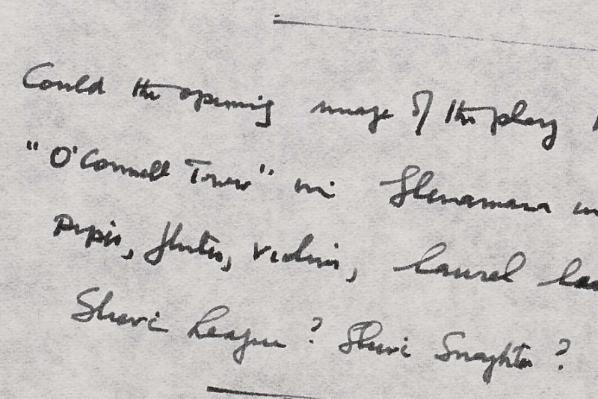 Could the opening image of the play
"O'Connell Tower" in Glenamara in
Pipes, flutes, violins, laurel
Slievi League? Slievi Snaghta?